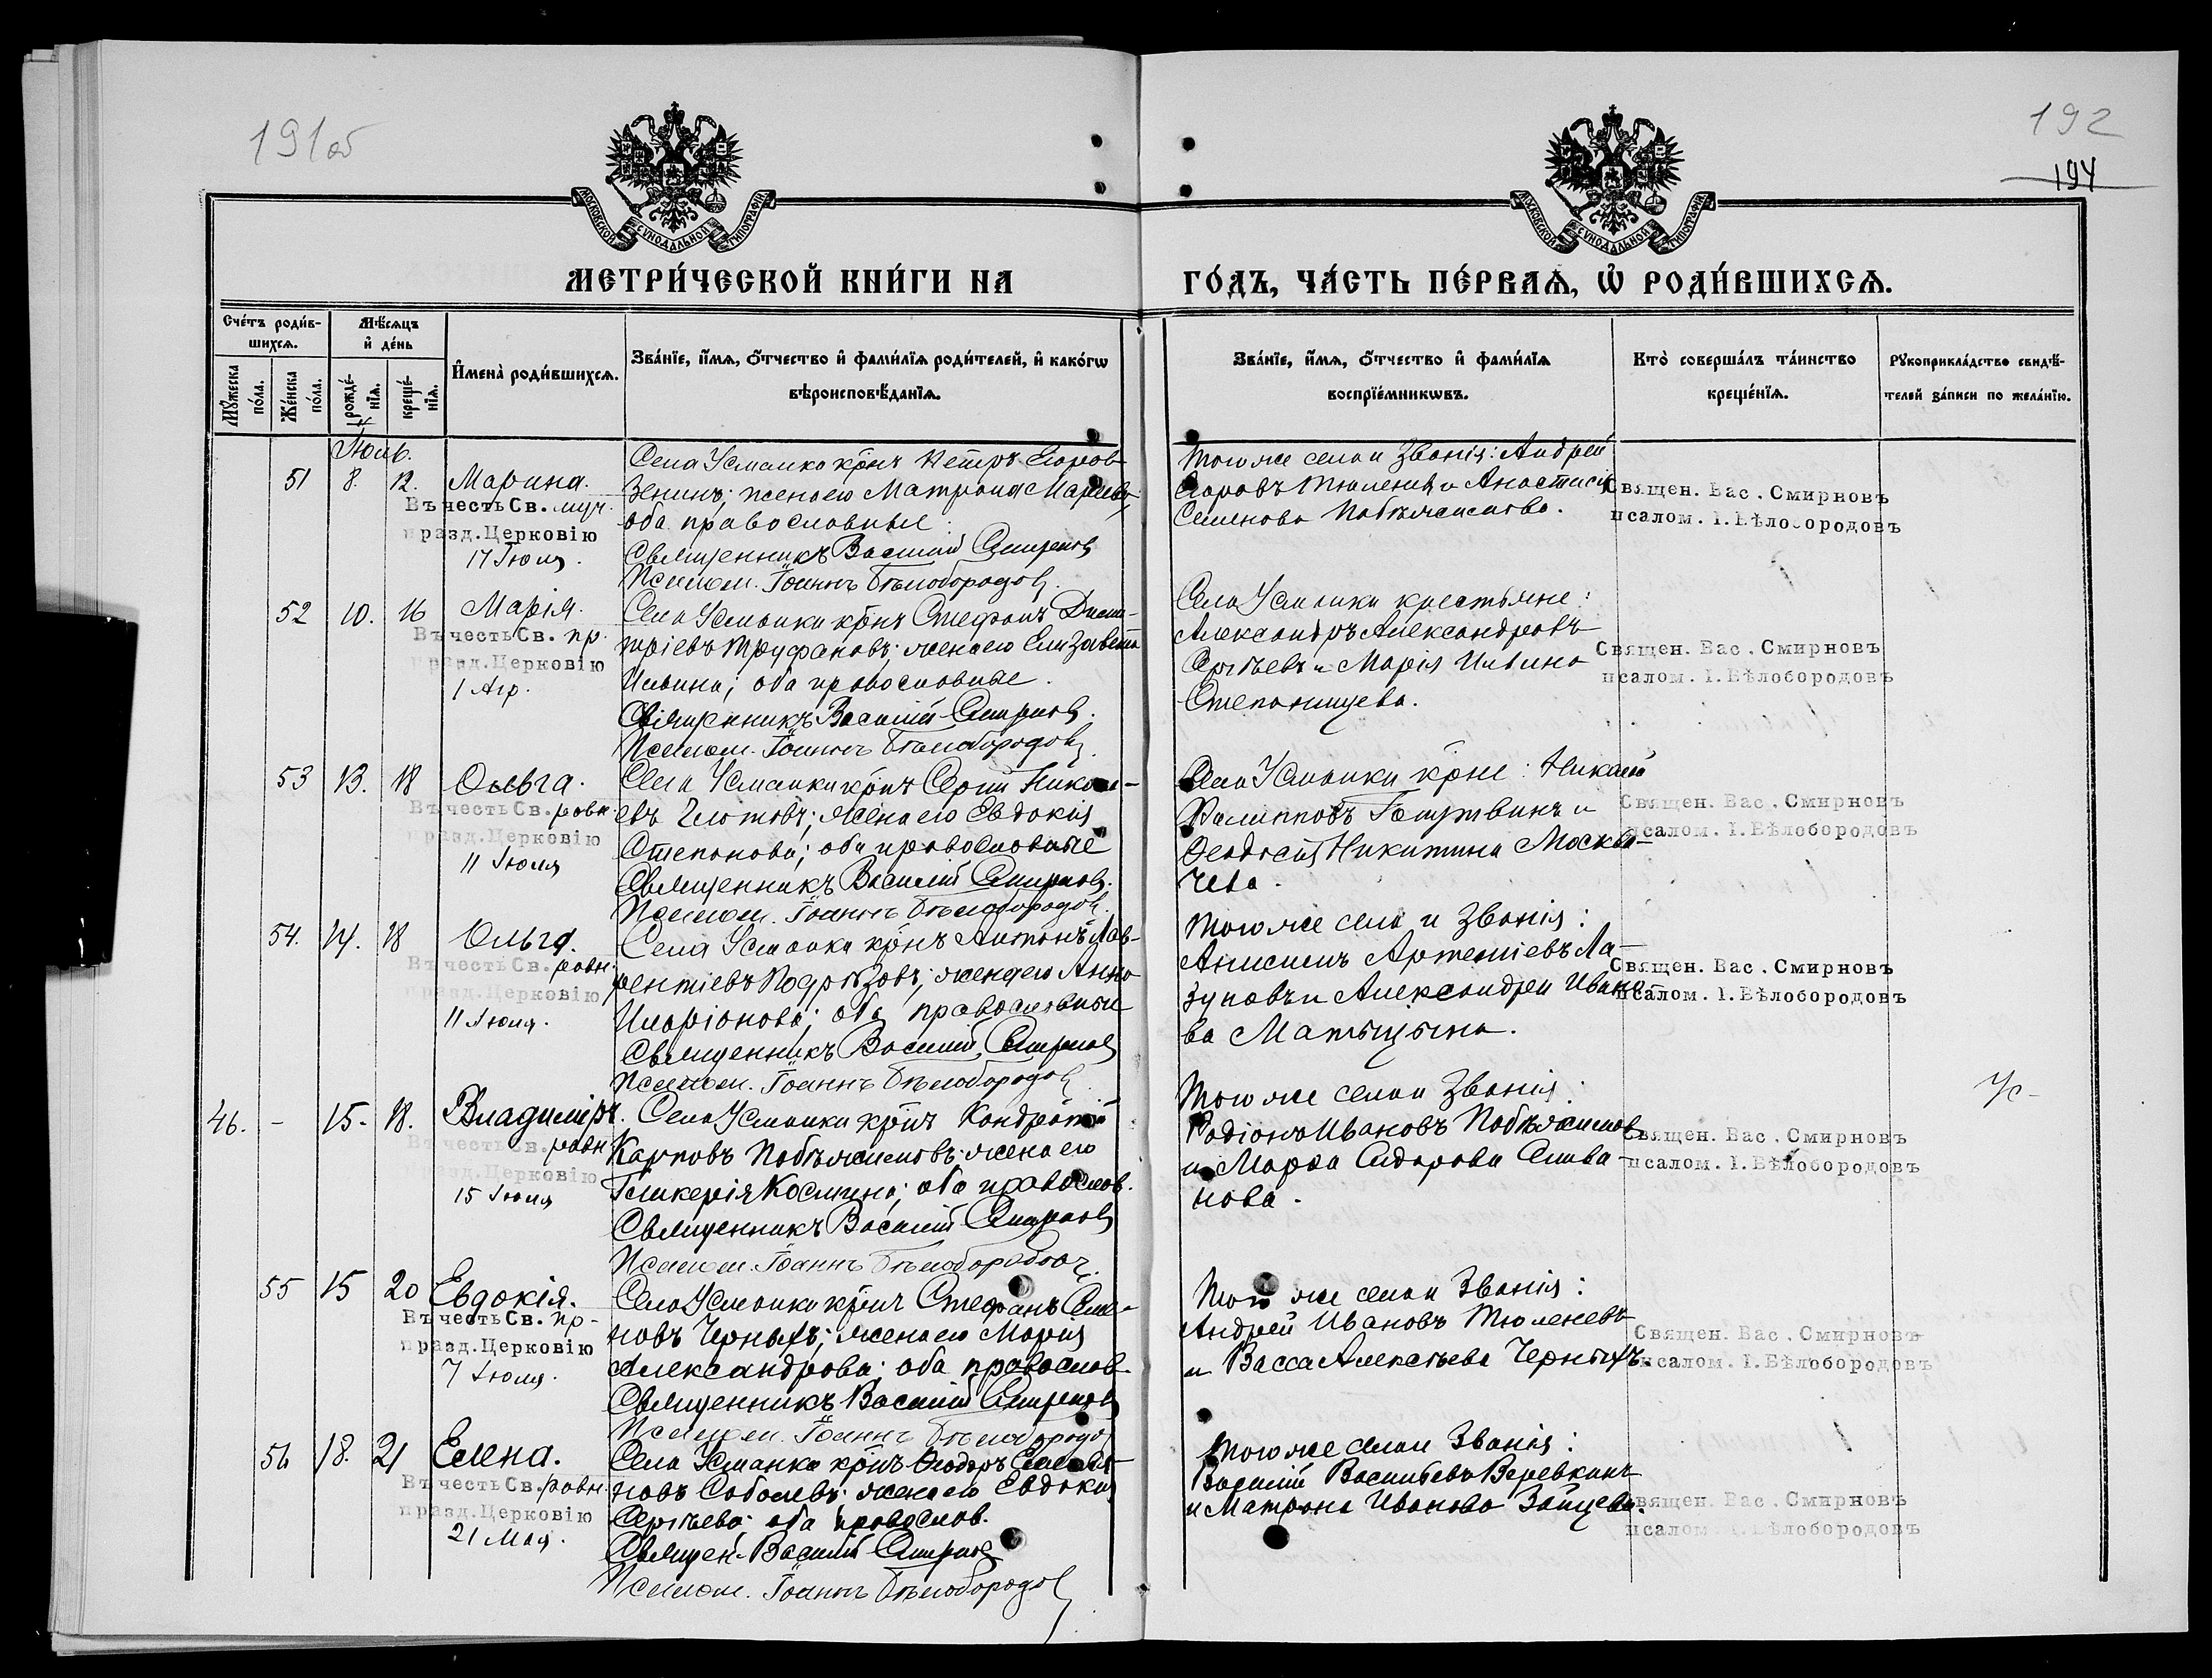 191об
192
194
МОСКОВСКОЙ СѴНОДАЛЬНОЙ ТИПОГРАФІИ
МОСКОВСКОЙ СѴНОДАЛЬНОЙ ТИПОГРАФІИ
МЕТРИ́ЧЕСКОЙ КНИ́ГИ НА
ГО́ДЪ, ЧА́СТЬ ПЕ́РВАѦ, Ѽ РОДИ́ВШИХСѦ.
Сче́тъ роди́в-
шихсѧ.
Мѣ́сѧцъ
и҆ де́нь
И҆мена̀ роди́вшихсѧ.
Зва́нїе, и҆́мѧ, ѻ҆́тчество и҆ фами́лїѧ роди́телей, и҆ како́гѡ
вѣроисповѣ́данїѧ.
Зва́нїе, и҆́мѧ, ѻ҆́тчество и҆ фами́лїѧ
воспрїе́мникѡвъ.
Кто̀ соверша́лъ та́инство
креще́нїѧ.
Рꙋкоприкла́дство свидѣ́-
телей за́писи по жела́нїю.
Мꙋ́жеска
по́ла.
Же́нска
по́ла.
рожде́-
нїѧ.
креще́-
нїѧ.
Іюль.
51 8. 12. Марина.
Въ честь Св. муч.
празд. Церковію
17 Іюля.
Села Усманки крнъ Петръ Егоров
Зенинъ; жена его Матрона
оба православные.
Священникъ Василій Смирновъ
Псалом. Іоаннъ Бѣлобородовъ.
Того же села и званія: Андрей
Егоровъ Тюленевъ и Анастасія
Семенова Побѣжимова.
Священ. Вас. Смирновъ
псалом. І. Бѣлобородовъ
52 10. 16 Марія.
Въ честь Св. пр.
празд. Церковію
1 Апр.
Села Усманки крнъ Стефанъ Дими-
тріевъ Труфановъ; жена его Елизавета
Ильина; оба православные.
Священникъ Василій Смирновъ.
Псалом. Іоаннъ Бѣлобородовъ.
Села Усманки крестьяне:
Александръ Александровъ
Сергѣевъ и Марія Ильина
Степанищева.
Священ. Вас. Смирновъ
псалом. І. Бѣлобородовъ
53 13. 18 Ольга.
Въ честь Св. равн.
празд. Церковію
11 Іюля
Села Усманки крнъ Сергій Никола-
евъ Глотовъ; жена его Евдокія
Степанова; оба православные
Священникъ Василій Смирновъ.
Псалом. Іоаннъ Бѣлобородовъ.
Села Усманки крне: Николай
Филипповъ и
Ѳеодосія Никитина Москви-
чева.
Священ. Вас. Смирновъ
псалом. І. Бѣлобородовъ
54. 14. 18 Ольга.
Въ честь Св. равн.
празд. Церковію
11 Іюля.
Села Усманки крнъ Антонъ Лав-
рентіевъ Подрѣзовъ; жена его Анна
Иларіонова; оба православные
Священникъ Василій Смирновъ
Псалом. Іоаннъ Бѣлобородовъ
Того же села и званія:
Анисимъ Артеміевъ Ла-
зуновъ и Александра Ивано-
ва Матыцына.
Священ. Вас. Смирновъ
псалом. І. Бѣлобородовъ
46. - 15. 18. Владиміръ.
Въ честь Св. равн.
празд. Церковію
15 Іюля
Села Усманки крнъ Кондратій
Карповъ Побѣжимовъ; жена его
Гликерія Космина; оба православ.
Священникъ Василій Смирновъ
Псалом. Іоаннъ Бѣлобородовъ.
Того же села и званія:
Родіонъ Ивановъ Побѣжимовъ
и Марѳа Сидорова Селива-
нова.
Священ. Вас. Смирновъ
псалом. І. Бѣлобородовъ
55 15 20 Евдокія.
Въ честь Св. пр-
празд. Церковію
7 Іюля.
Села Усманки крнъ Стефанъ Семе-
новъ Черныхъ; жена его Марія
Александрова; оба православ.
Священникъ Василій Смирновъ
Псалом. Іоаннъ Бѣлобородов
Того же села и званія:
Андрей Ивановъ Тюленевъ
и Васса Алексѣева Черныхъ.
Священ. Вас. Смирновъ
псалом. І. Бѣлобородовъ
56 18. 21 Елена.
Въ честь Св. равн.
празд. Церковію
21 Мая.
Села Усманки крнъ Ѳеодоръ
новъ Соболевъ; жена его Евдокія
Сергѣева; оба православ.
Священ. Василій Смирновъ
Псалом. Іоаннъ Бѣлобородовъ
Того же села и званія:
Василій Васильевъ Веревкинъ
и Матрона Иванова Зайцева.
Священ. Вас. Смирновъ
псалом. І. Бѣлобородовъ